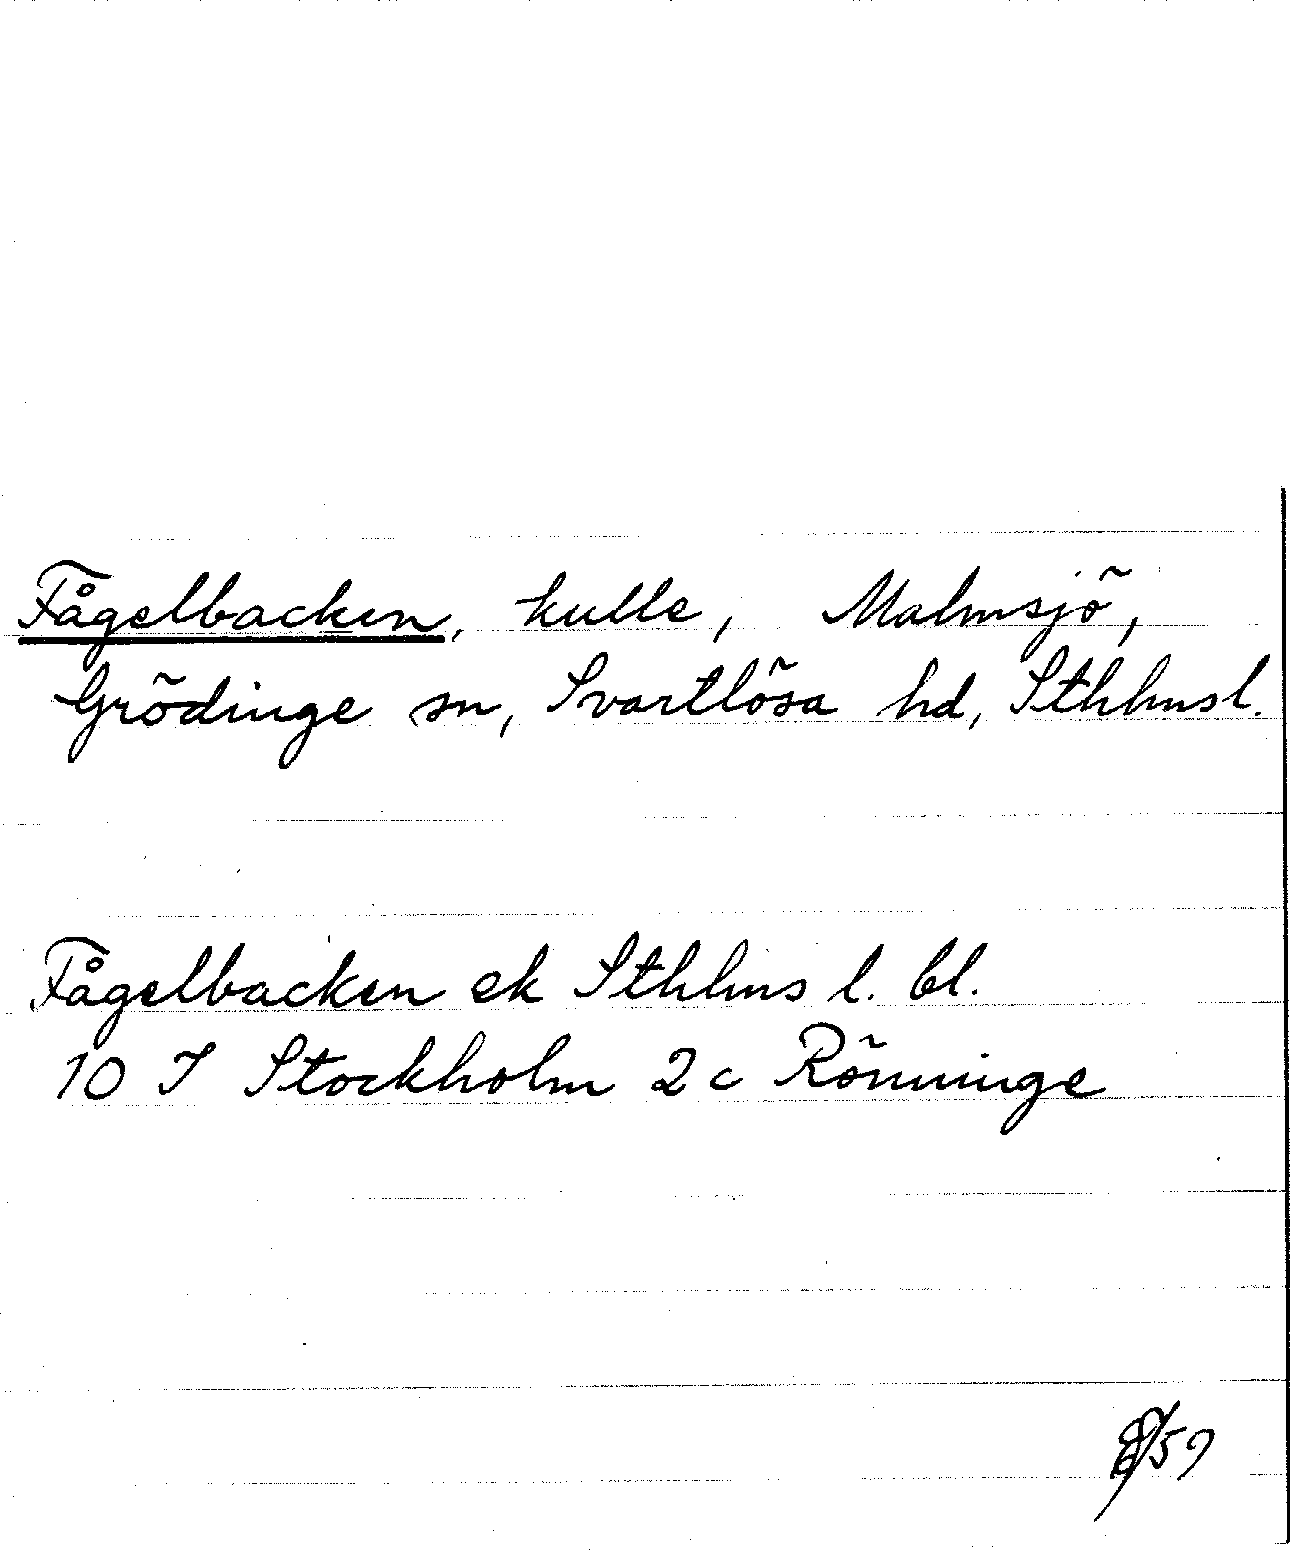 Fågelbacken, kulle, Malmsjö,
Grödinge sn, Svartlösa hd, Sthlmsl.
Fågelbacken ek Sthlms l. bl.
10 I Stockholm 2 c Rönninge
/59